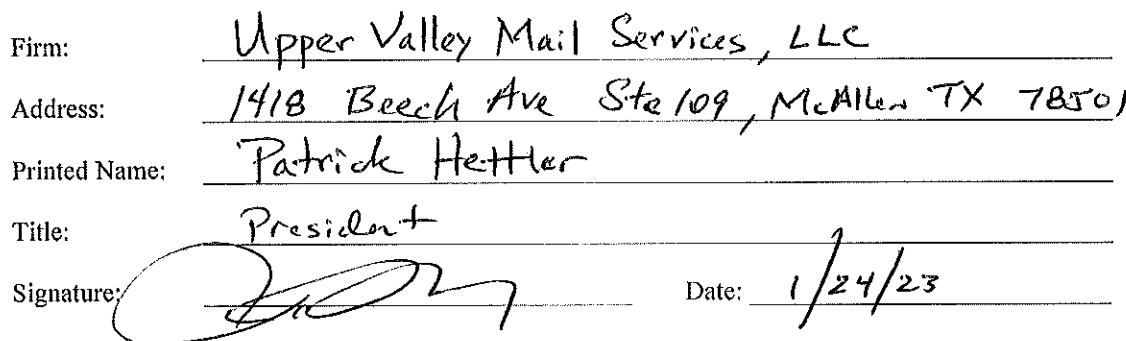 Firm: Upper Valley Mail Services, LLC
Address: 1418 Beech Ave Ste 109, McAllen TX 78501
Printed Name: Patrick Hettler
Title: President
Signature: Date: 1/24/23